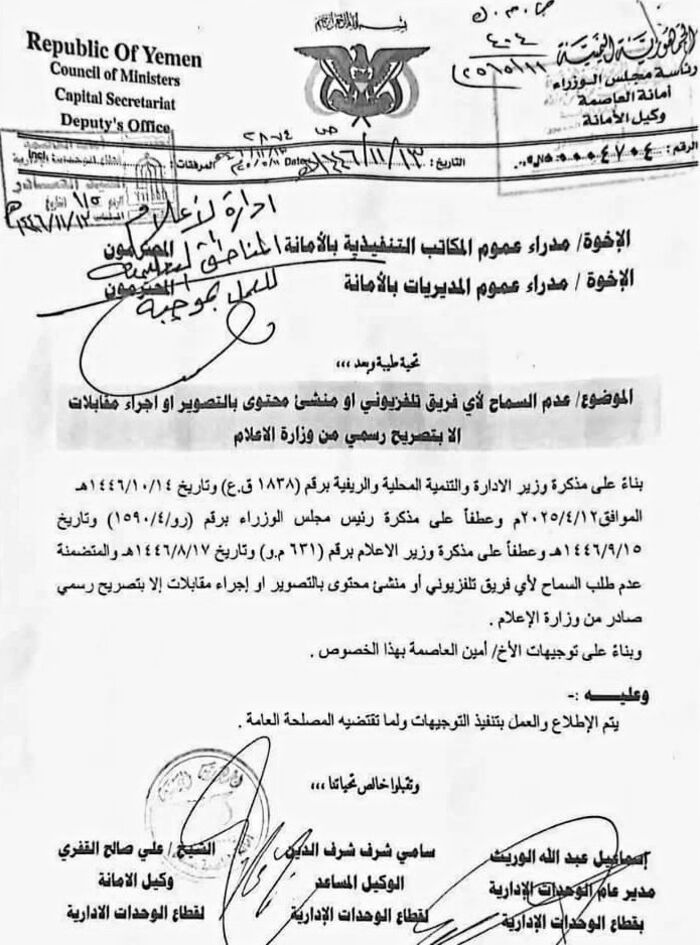 Republic Of Yemen
Council of Ministers
Capital Secretariat
Deputy's Office
الجمهورية اليمنية
رئاسة مجلس الوزراء
أمانة العاصمة
وكيل الأمانة
الرقم: 0004704
التاريخ: ١٤٤٦/١١/١٣
Date
المرفقات:
ادارة لأعلام
للعمل بموجبه
الإخوة/ مدراء عموم المكاتب التنفيذية بالأمانة المحترمون
الإخوة / مدراء عموم المديريات بالأمانة المحترمون
تحية طيبة وبعد ،،،
الموضوع/ عدم السماح لأي فريق تلفزيوني او منشئ محتوى بالتصوير او اجراء مقابلات
الا بتصريح رسمي من وزارة الاعلام
بناءً على مذكرة وزير الادارة والتنمية المحلية والريفية برقم (١٨٣٨ ق.ع) وتاريخ ١٤٤٦/١٠/١٤هـ
الموافق٢٠٢٥/٤/١٢م وعطفاً على مذكرة رئيس مجلس الوزراء برقم (رو/١٥٩٠/٤) وتاريخ
١٤٤٦/٩/١٥هـ وعطفاً على مذكرة وزير الاعلام برقم (٦٣١ م.و) وتاريخ ١٤٤٦/٨/١٧هـ والمتضمنة
عدم طلب السماح لأي فريق تلفزيوني أو منشئ محتوى بالتصوير او إجراء مقابلات إلا بتصريح رسمي
صادر من وزارة الإعلام .
وبناءً على توجيهات الأخ/ أمين العاصمة بهذا الخصوص .
وعليـــه :-
يتم الإطلاع والعمل بتنفيذ التوجيهات ولما تقتضيه المصلحة العامة .
وتقبلوا خالص تحياتنا ،،،
اسماعيل عبد الله الوريث
مدير عام الوحدات الإدارية
بقطاع الوحدات الإدارية
سامي شرف شرف الدين
الوكيل المساعد
لقطاع الوحدات الإدارية
الشيخ / علي صالح القفري
وكيل الامانة
لقطاع الوحدات الادارية